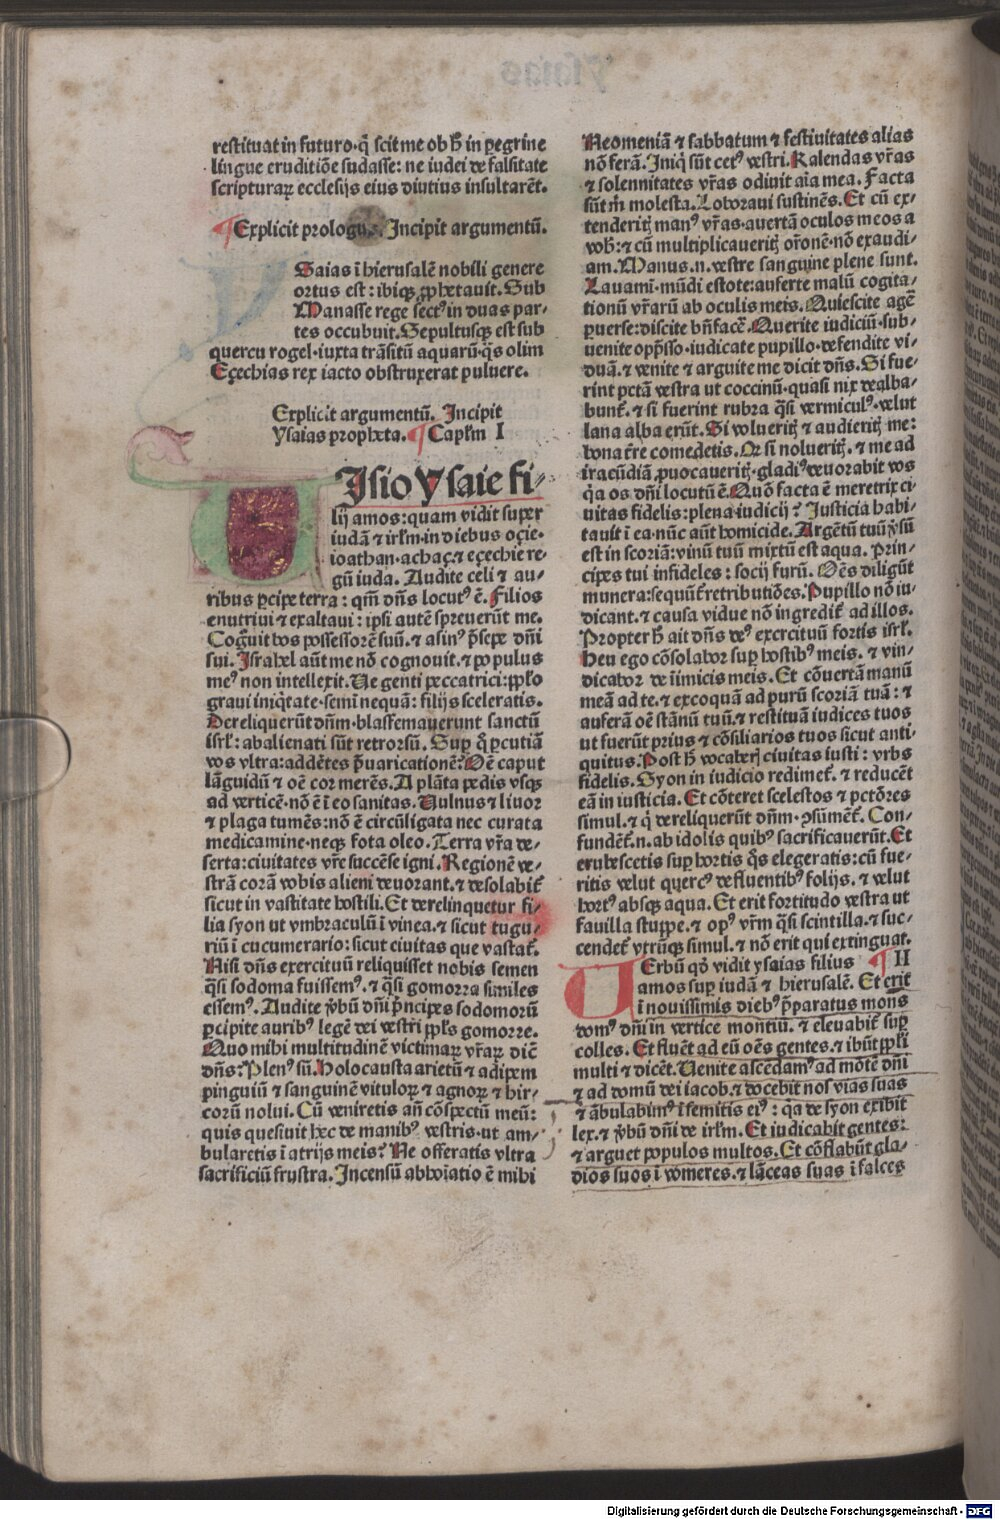 restituat in futuro·q̄ scit me ob hͦ in pegrine
lingue eruditiōe sudasse: ne iudei de falsitate
scripturaꝝ ecclesijs eius diutius insultarēt.
¶Explicit prologus. Incipit argumentū.
YSaias ī hierusalē nobili genere
ortus est: ibiqꝫ ꝓphetauit. Sub
Manasse rege sectꝰ in duas par-
tes occubuit. Sepultusqꝫ est sub
quercu rogel·iuxta trāsitū aquarū·q̄s olim
Eçechias rex iacto obstruxerat puluere.
Explicit argumentū. Incipit
Ysaias propheta. ¶Capłm I
VIsio Ysaie fi-
lij amos: quam vidit super
iudā ⁊ irłm·in diebus oçie·
ioathan·achaç·⁊ eçechie re-
gū iuda. Audite celi ⁊ au-
ribus ꝑcipe terra: qm̄ dn̄s locutꝰ ē. Filios
enutriui ⁊ exaltaui: ipsi autē spreuerūt me.
Cogͦuit bos possessorē suū. ⁊ asinꝰ p̄sepe dn̄i
sui. Israhel aūt me nō cognouit.⁊ populus
meꝰ non intellexit. Ue genti peccatrici: ppło
graui iniq̄tate·semī nequā: filijs sceleratis.
Dereliquerūt dn̄m·blasfemauerunt sanctū
isrł: abalienati sūt retrorsū. Suꝑ q̄ ꝑcutiā
vos vltra: addētes p̄uaricationē? Oē caput
lāguidū ⁊ oē cor merēs. A plāta pedis vsqꝫ
ad verticē·nō ē ī eo sanitas. Uulnus ⁊ liuor
⁊ plaga tumēs: nō ē circūligata nec curata
medicamine·neqꝫ fota oleo. Terra vr̄a de-
serta: ciuitates vr̄e succēse igni. Regionē ve-
strā corā vobis alieni deuorant.⁊ desolabit̄
sicut in vastitate hostili. Et derelinquetur fi-
lia syon ut vmbraculū ī vinea.⁊ sicut tugu-
riū ī cucumerario: sicut ciuitas que vastat̄.
Nisi dn̄s exercituū reliquisset nobis semen
q̄si sodoma fuissemꝰ.⁊ q̄si gomorra similes
essemꝰ. Audite v̄bū dn̄i p̄ncipes sodomorū
ꝑcipite auribꝰ legē dei vestri ppłs gomorre.
Quo mihi multitudinē victimaꝝ vr̄aꝝ dic̄
dn̄s? Plenꝰ sū. Holocausta arietū ⁊ adipem
pinguiū ⁊ sanguinē vituloꝝ ⁊ agnoꝝ ⁊ hir-
corū nolui. Cū veniretis an̄ cōspectū meū:
quis quesiuit hec de manibꝰ vestris·ut am-
bularetis ī atrijs meis? Ne offeratis vltra
sacrificiū frustra. Incensū abhoīatio ē mihi
Neomeniā ⁊ sabbatum ⁊ festiuitates alias
nō ferā. Iniq̄ sūt cetꝰ vestri. Kalendas vr̄as
⁊ solennitates vr̄as odiuit aīa mea. Facta
sūt m̄ molesta. Laboraui sustinēs. Et cū ex-
tenderitꝭ manꝰ vr̄as·auertā oculos meos a
vob̄:⁊ cū multiplicaueritꝭ or̄onē·nō exaudi-
am. Manus .n. vestre sanguine plene sunt.
Lauami·mūdi estote: auferte malū cogita-
tionū vr̄arū ab oculis meis. Quiescite agē
ꝑuerse: discite bn̄facē. Querite iudiciū·sub-
uenite opp̄sso·iudicate pupillo·defendite vi-
duā.⁊ venite ⁊ arguite me dicit dn̄s. Si fue-
rint pctā vestra ut coccinū·quasi nix dealba-
bunt̄.⁊ si fuerint rubra q̄si vermiculꝰ·velut
lana alba erūt. Si volueritꝭ ⁊ audieritꝭ me:
bona t̄re comedetis. Qꝛ si nolueritꝭ.⁊ me ad
iracūdiā ꝓuocaueritꝭ·gladiꝰ deuorabit vos
q̄a os dn̄i locutū ē. Quō facta ē meretrix ci-
uitas fidelis: plena iudicij? Iusticia habi-
tauit ī ea·nūc aūt homicide. Argētū tuū v̄sū
est in scoriā: vinū tuū mixtū est aqua. Prin-
cipes tui infideles: socij furū. Oēs diligūt
munera: sequūt̄ retributiōes. Pupillo nō iu-
dicant.⁊ causa vidue nō ingredit̄ ad illos.
Propter hͦ ait dn̄s deꝰ exercituū fortis isrł.
Heu ego cōsolabor suꝑ hostibꝰ meis.⁊ vin-
dicabor de īimicis meis. Et cōuertā manū
meā ad te.⁊ excoquā ad purū scoriā tuā:⁊
auferā oē stānū tuū.⁊ restituā iudices tuos
ut fuerūt prius ⁊ cōsiliarios tuos sicut anti-
quitus. Post hͦ vocaberꝭ ciuitas iusti: vrbs
fidelis. Syon in iudicio redimet̄.⁊ reducēt
eā in iusticia. Et cōteret scelestos ⁊ pctōres
simul.⁊ q̄ dereliquerūt dn̄m·ꝯsūment̄. Con-
fundēt̄ .n. ab idolis quibꝰ sacrificauerūt. Et
erubescetis suꝑ hortis q̄s elegeratis: cū fue-
ritis velut quercꝰ defluentibꝰ folijs.⁊ velut
hortꝰ absqꝫ aqua. Et erit fortitudo vestra ut
fauilla stuppe.⁊ opꝰ vr̄m q̄si scintilla.⁊ suc-
cendet̄ vtrūqꝫ simul.⁊ nō erit qui extinguat.
VErbū qd̄ vidit ysaias filius ¶II
amos suꝑ iudā ⁊ hierusalē. Et erit
ī nouissimis diebꝰ p̄paratus mons
domꝰ dn̄i in vertice montiū.⁊ eleuabit̄ suꝑ
colles. Et fluēt ad eū oēs gentes.⁊ ibūt ppłi
multi ⁊ dicēt. Uenite ascēdamꝰ ad mōtē dn̄i
⁊ ad domū dei iacob.⁊ docebit nos vias suas
⁊ ābulabimꝰ ī semitis eiꝰ: q̄a de syon exibit
lex.⁊ v̄bū dn̄i de irłm. Et iudicabit gentes:
⁊ arguet populos multos. Et cōflabūt gla-
dios suos ī vomeres.⁊ lāceas suas ī falces
Digitalisierung gefördert durch die Deutsche Forschungsgemeinschaft - DFG